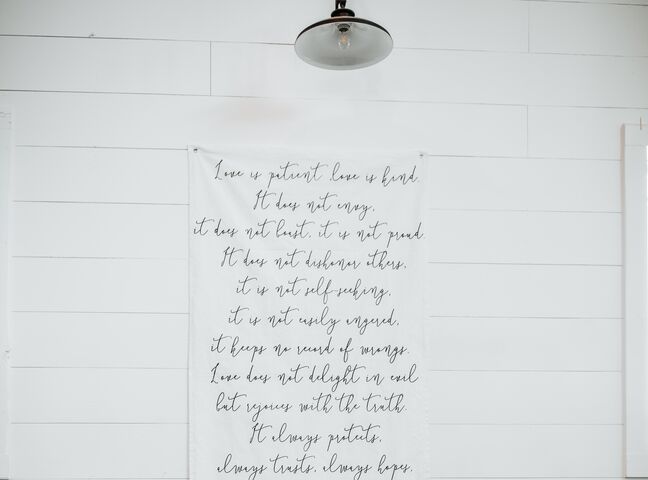 Love is patient, love is kind.
It does not envy,
it does not boast, it is not proud.
It does not dishonor others,
it is not self-seeking,
it is not easily angered,
it keeps no record of wrongs.
Love does not delight in evil
but rejoices with the truth.
It always protects,
always trusts, always hopes,